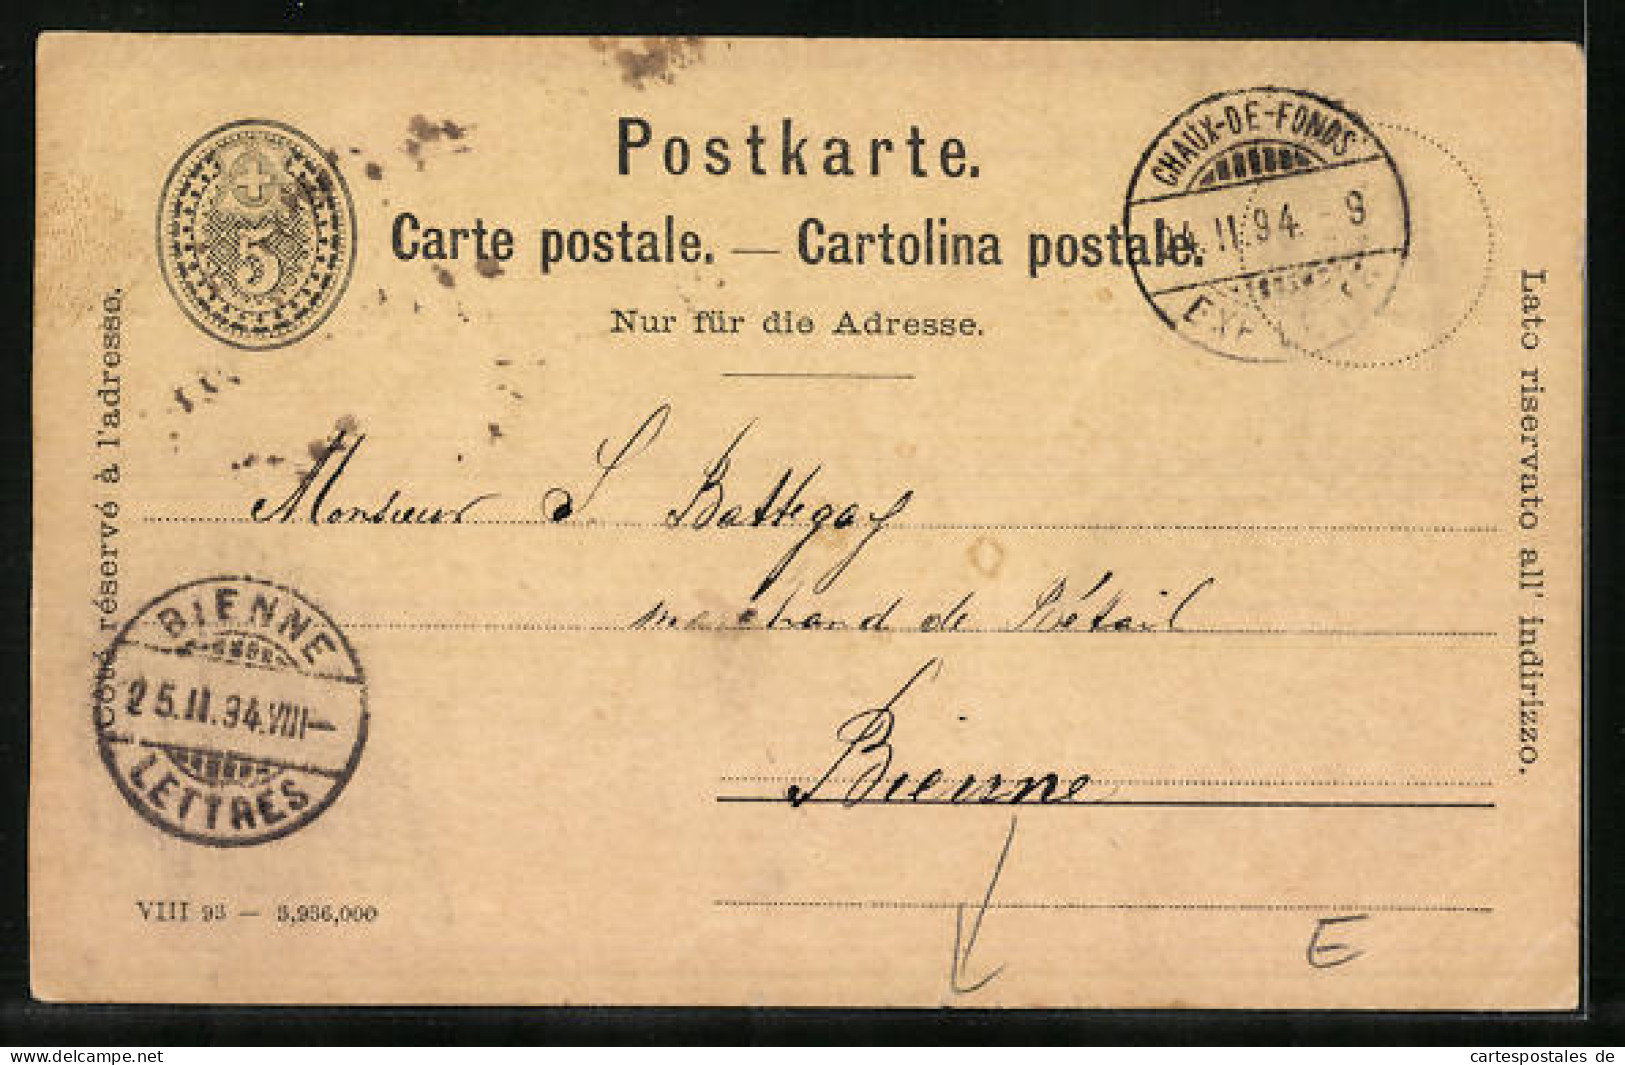 Postkarte.
Carte postale. — Cartolina postale.
Nur für die Adresse.
5
CHAUX-DE-FONDS
24.II.94.-9
Côté réservé à l'adresse.
Lato riservato all' indirizzo.
Monsieur S Battegay
marchand de Bétail
Bienne
BIENNE
25.II.94.VIII—
LETTRES
VIII 93 — 5,936,000
E
Visit www.delcampe.net
cartespostales de